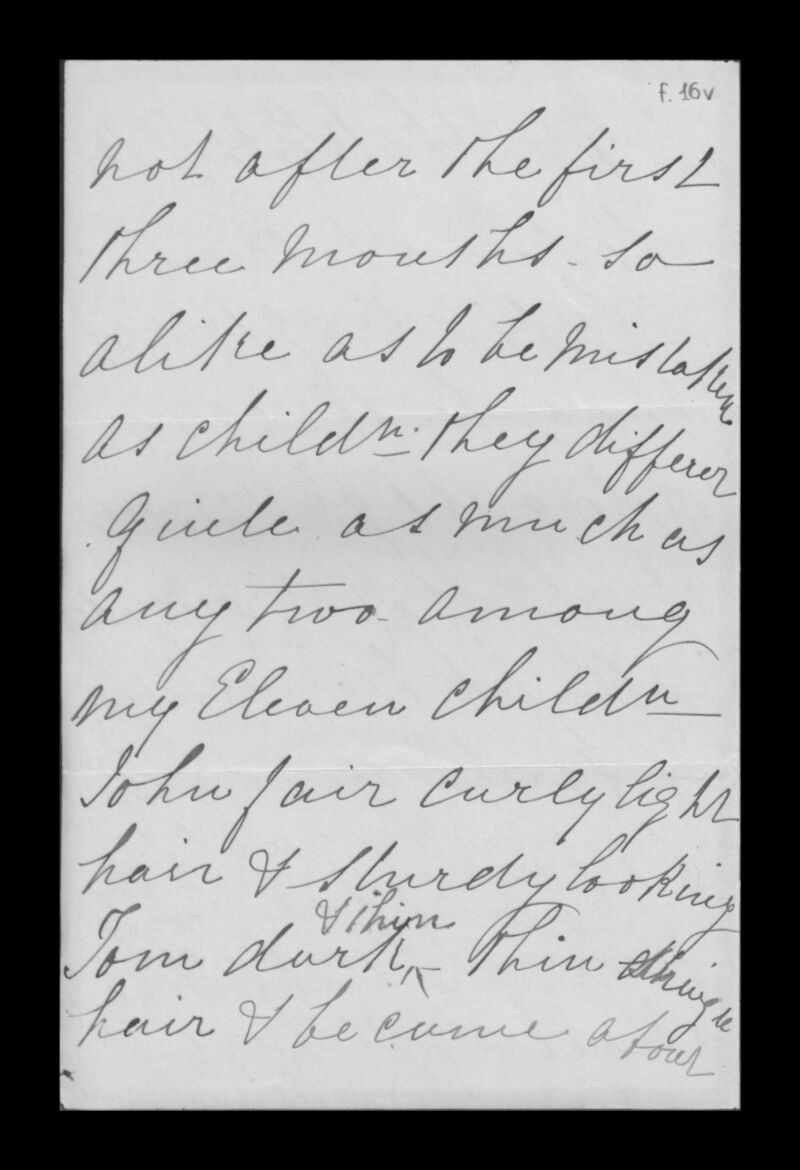 f. 16v
not after the first
three months - so
alike as to be mistaken
as childn. they differed
quite as much as
any two among
my Eleven childn
John fair curly light
hair & sturdy looking
& thin
Tom dark, - thin
hair & became about